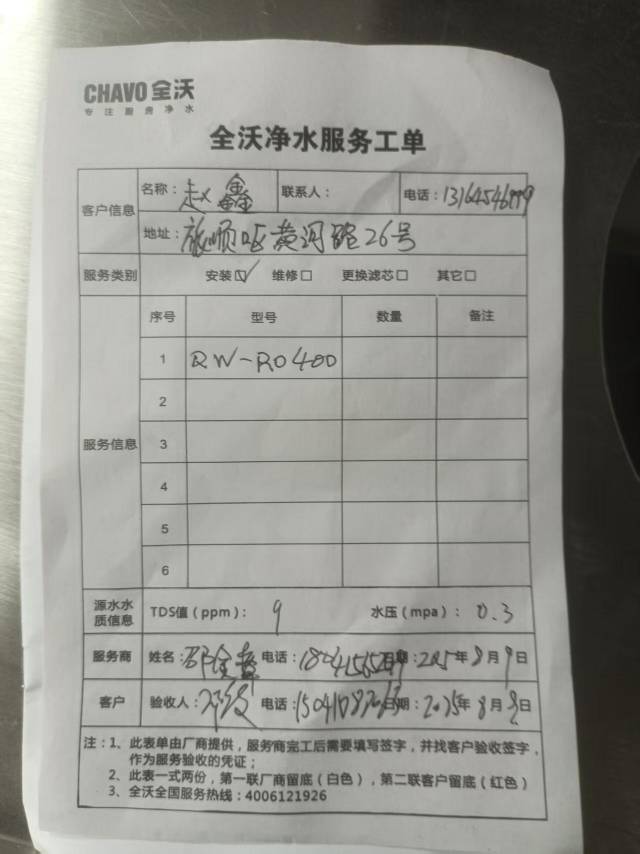 CHAVO 全沃
专注厨房净水
全沃净水服务工单
客户信息 名称：赵鑫 联系人： 电话：
地址：旅顺区黄河路26号
服务类别 安装☑ 维修□ 更换滤芯□ 其它□
服务信息 序号 型号 数量 备注
1 QW-RO400
2
3
4
5
6
源水水质信息 TDS值（ppm）：9 水压（mpa）：0.3
服务商 姓名： 电话： 日期：2025年8月9日
客户 验收人： 电话： 日期：2025年8月9日
注：1、此表单由厂商提供，服务商完工后需要填写签字，并找客户验收签字，
作为服务验收的凭证；
2、此表一式两份，第一联厂商留底（白色），第二联客户留底（红色）
3、全沃全国服务热线：4006121926